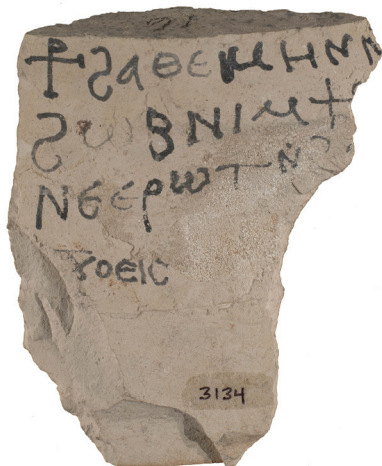 ⳨ ϩⲁⲑⲉⲙⲏⲛⲛ
ϩⲱⲃⲛⲓⲙϯ
ⲛⲉⲉⲣⲱⲧⲛ
ϫⲟⲉⲓⲥ
3134